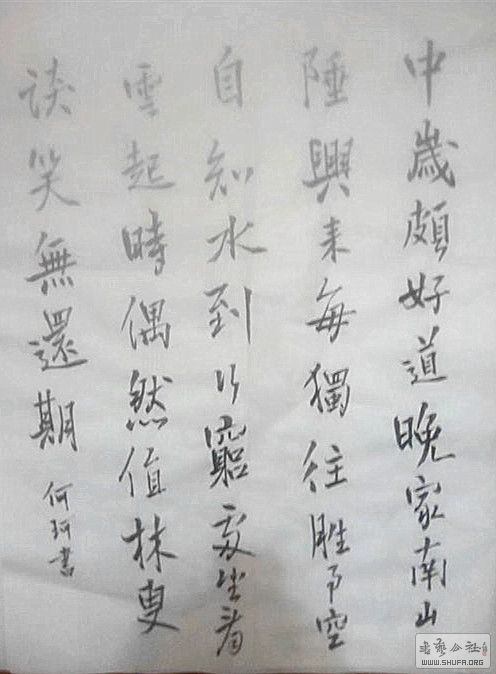 中歲頗好道晚家南山
陲興来每獨往胜事空
自知水到行窮處坐看
雲起時偶然值林叟
谈笑無還期 何珂書
書藝公社
WWW.SHUFA.ORG